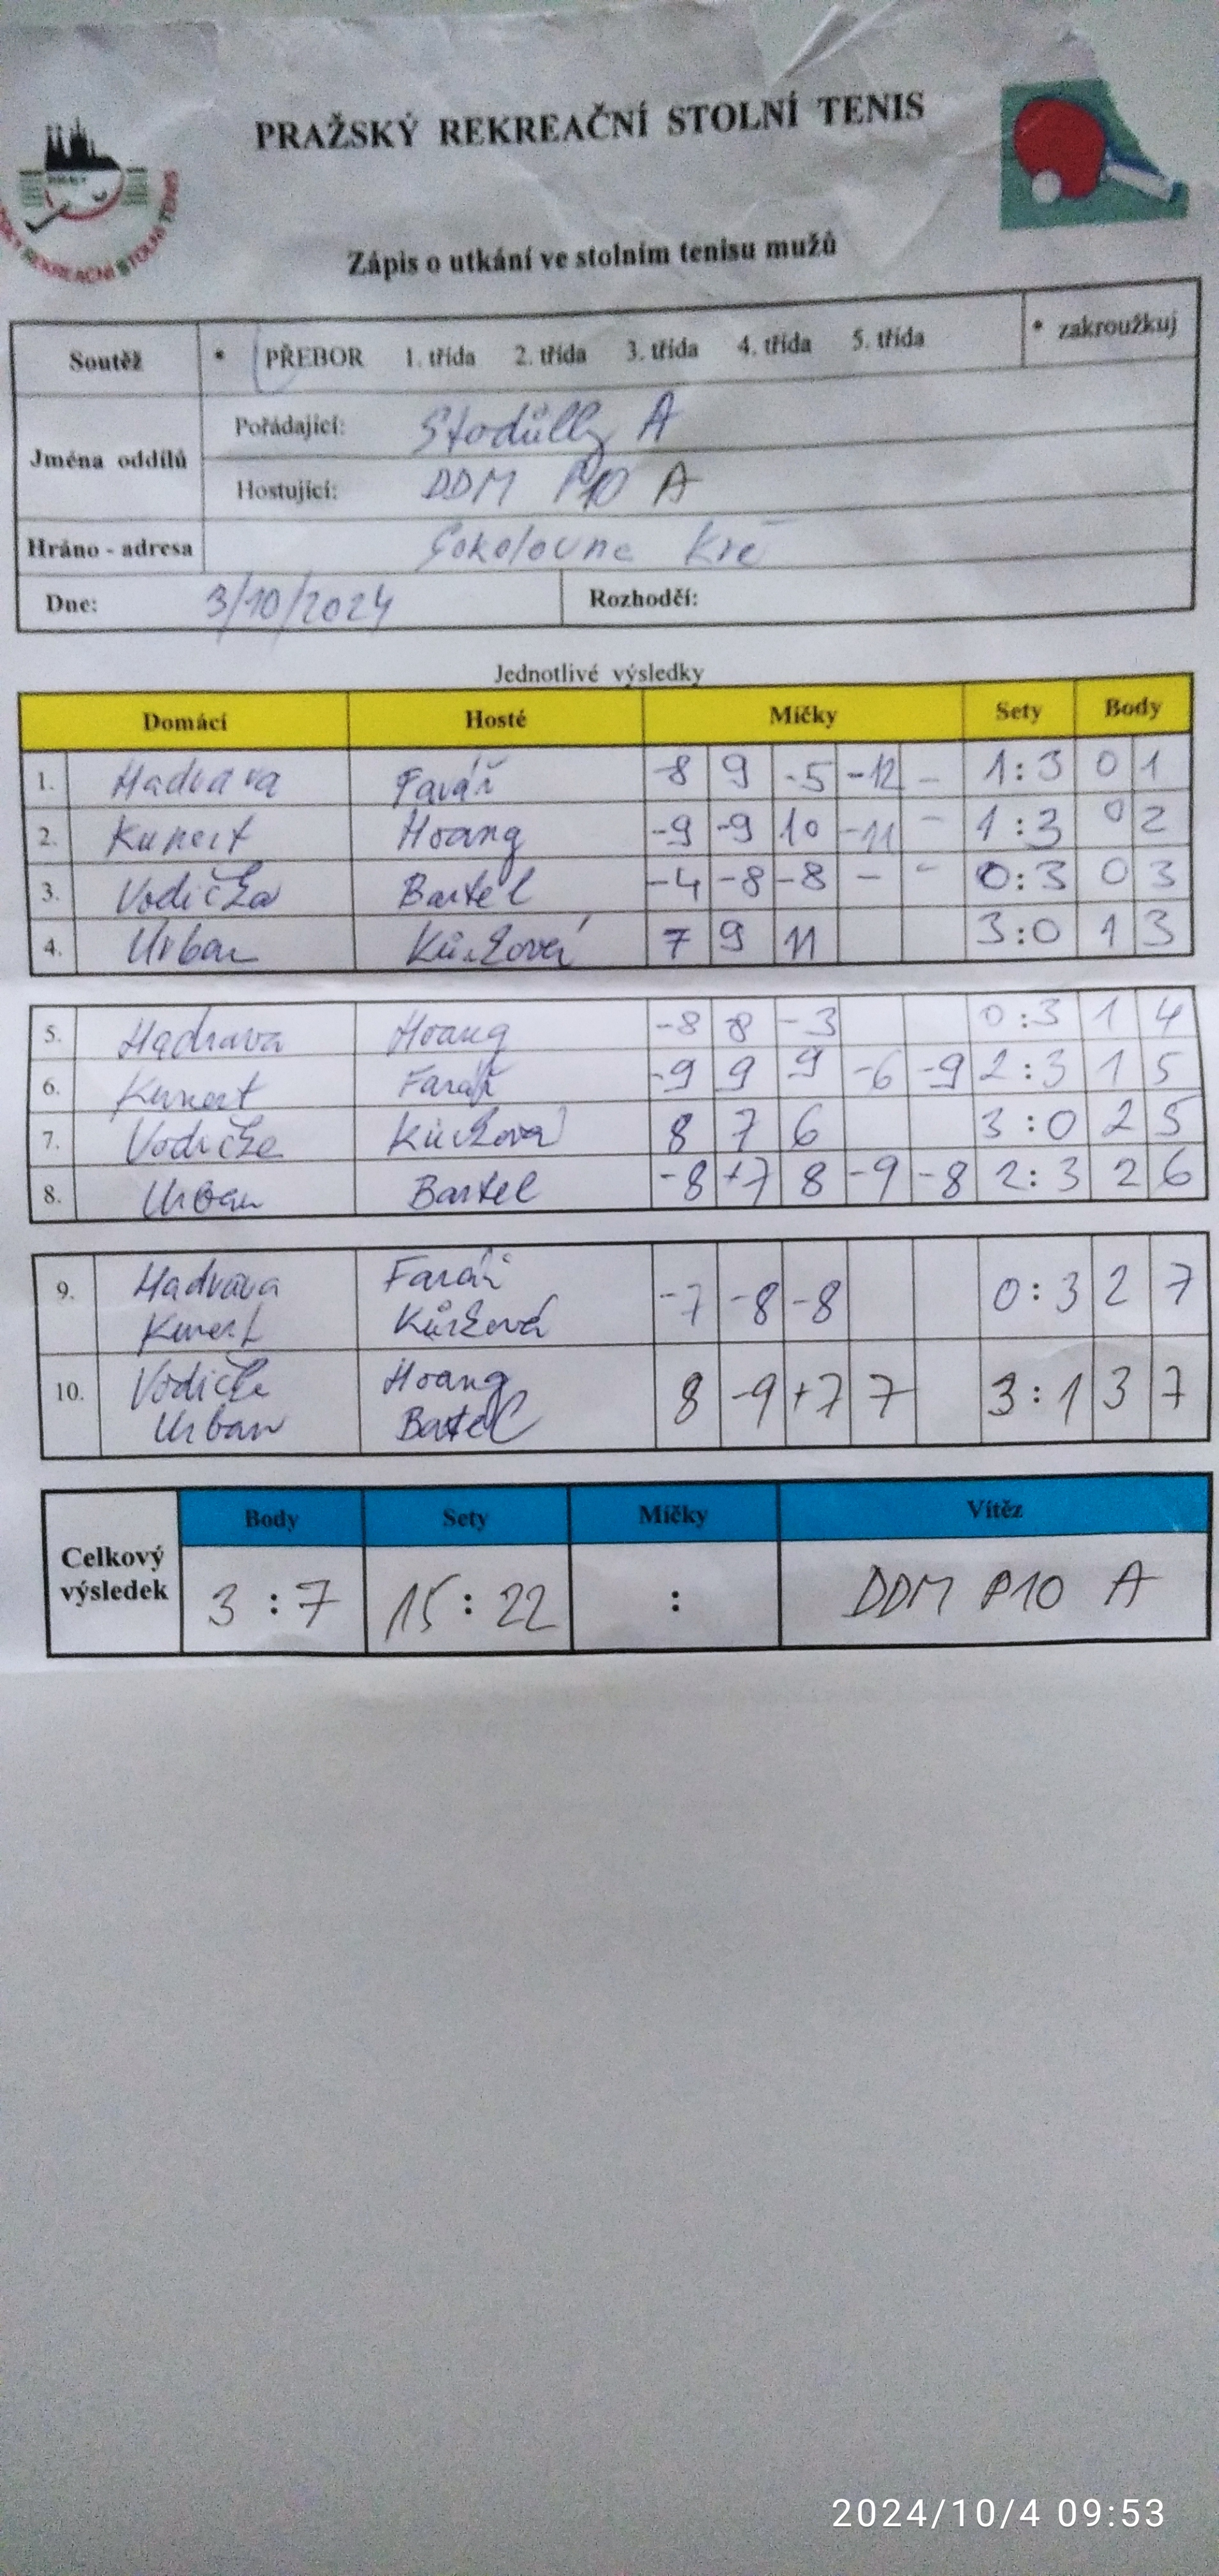 PRAŽSKÝ REKREAČNÍ STOLNÍ TENIS
Zápis o utkání ve stolním tenisu mužů
Soutěž * PŘEBOR 1. třída 2. třída 3. třída 4. třída 5. třída * zakroužkuj
Jména oddílů
Pořádající: Stodůlky A
Hostující: DDM P10 A
Hráno - adresa Sokolovna Krč
Dne: 3/10/2024 Rozhodčí:
Jednotlivé výsledky
Domácí Hosté Míčky Sety Body
1. Hadrava Farář -8 9 -5 -12 - 1:3 0 1
2. Kunert Hoang -9 -9 10 -11 - 1:3 0 2
3. Vodička Bartel -4 -8 -8 - - 0:3 0 3
4. Urban Kůrková 7 9 11 3:0 1 3
5. Hadrava Hoang -8 -8 -3 0:3 1 4
6. Kunert Farář -9 9 9 -6 -9 2:3 1 5
7. Vodička Kůrková 8 7 6 3:0 2 5
8. Urban Bartel -8 +7 8 -9 -8 2:3 2 6
9. Hadrava Farář -7 -8 -8 0:3 2 7
Kunert Kůrková
10. Vodička Hoang 8 -9 +7 7 3:1 3 7
Urban Bartel
Celkový výsledek
Body Sety Míčky Vítěz
3:7 15:22 : DDM P10 A
2024/10/4 09:53